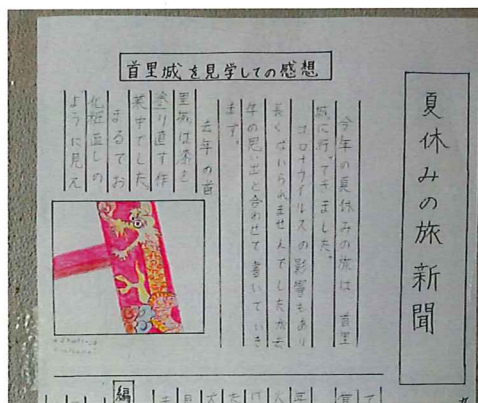 夏休みの旅新聞
首里城を見学しての感想
今年の夏休みの旅は、首里
城に行ってきました。
コロナウイルスの影響もあり
長くはいられませんでしたが去
年の思い出と合わせて書いていき
ます。
去年の首
里城は漆を
塗り直す作
業中でした。
まるでお
化粧直しの
ように見え
編